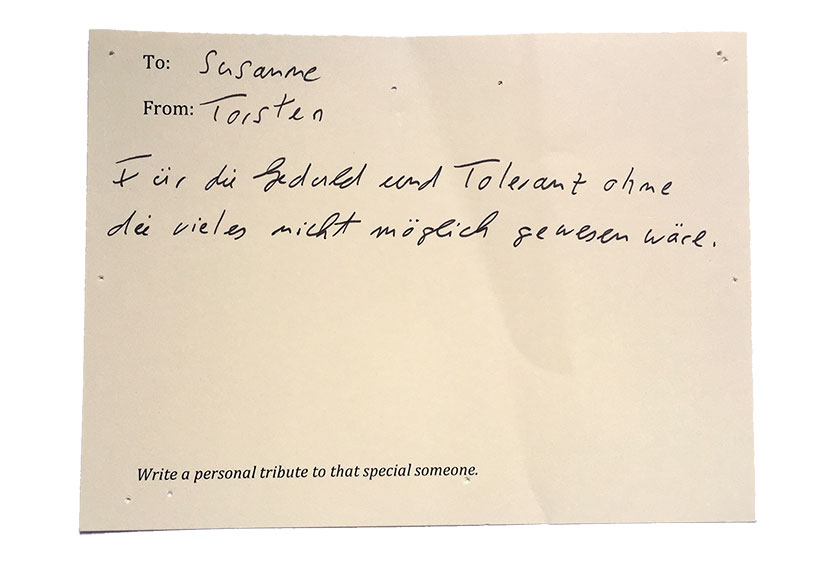 To: Susanne
From: Torsten
Für die Geduld und Toleranz ohne
die vieles nicht möglich gewesen wäre.
Write a personal tribute to that special someone.